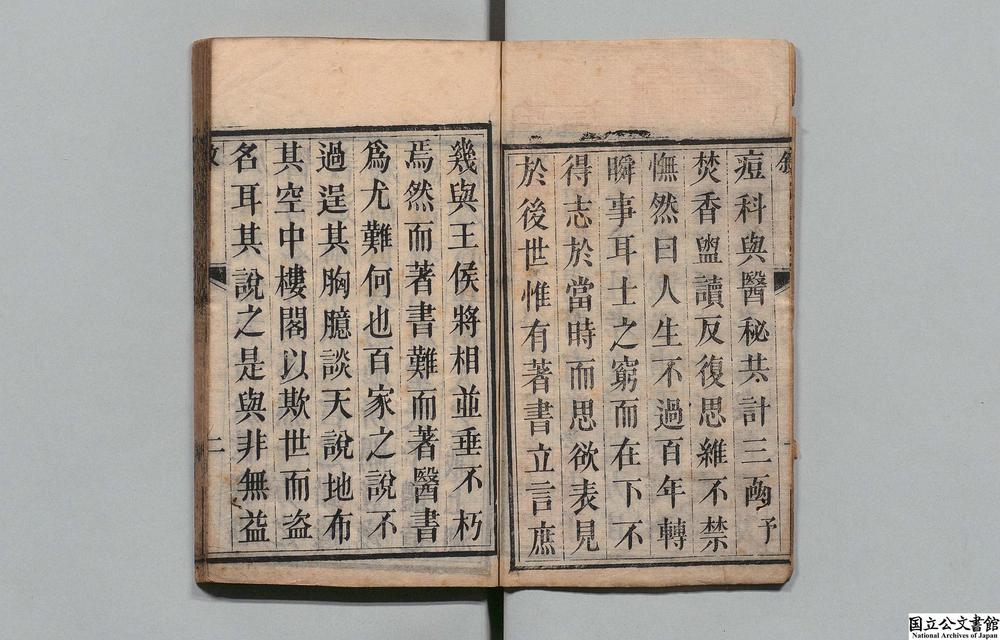 敘
痘科與醫秘共計三函予
焚香盥讀反復思維不禁
憮然曰人生不過百年轉
瞬事耳士之窮而在下不
得志於當時而思欲表見
於後世惟有著書立言庶
幾與王侯將相並垂不朽
焉然而著書難而著醫書
爲尤難何也百家之說不
過逞其胸臆談天說地布
其空中樓閣以欺世而盗
名耳其說之是與非無益
二
国立公文書館
National Archives of Japan